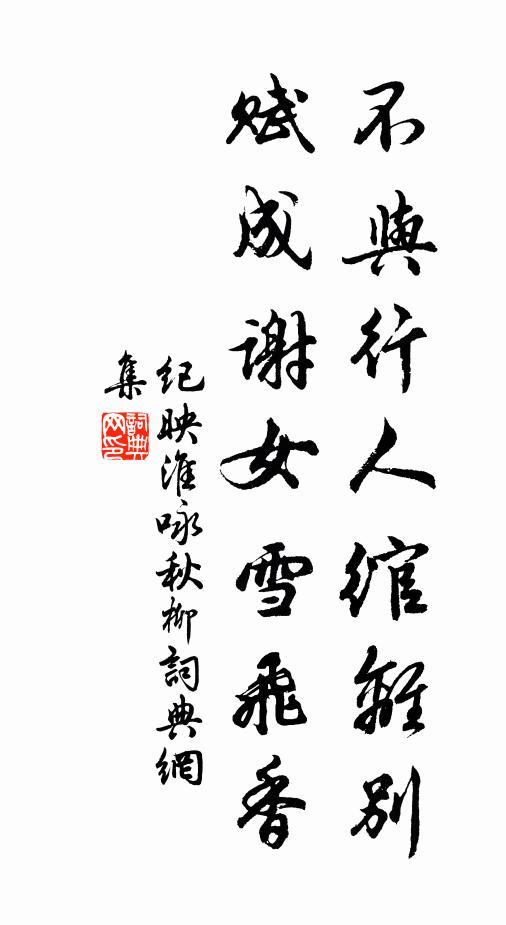 不與行人綰離別
賦成謝女雪飛香
紀映淮咏秋柳詞典網
集
詞典
网印